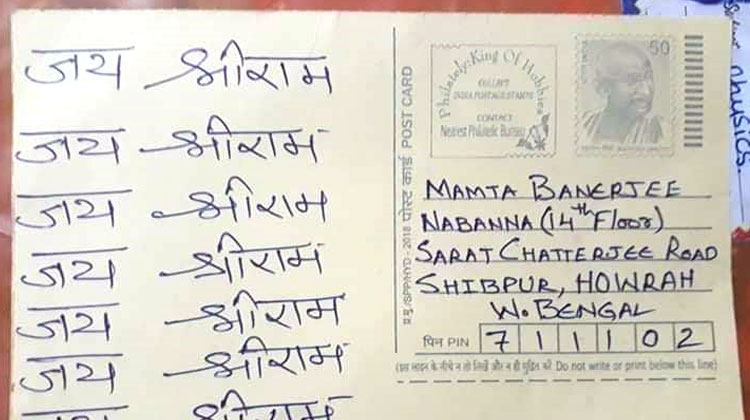 जय श्रीराम
जय श्रीराम
जय श्रीराम
जय श्रीराम
जय श्रीराम
जय श्रीराम
जय श्रीराम
SPPAHYD - 2018 पोस्ट कार्ड POST CARD
Philately: King Of Hobbies
COLLECT
INDIA POSTAGE STAMPS
CONTACT
Nearest Philatelic Bureau
50
MAMTA BANERJEE
NABANNA (14th Floor)
SARAT CHATTERJEE ROAD
SHIBPUR, HOWRAH
W. BENGAL
पिन PIN 711102
(इस लाइन के नीचे न तो लिखें और न ही मुद्रित करें Do not write or print below this line)
Physics.